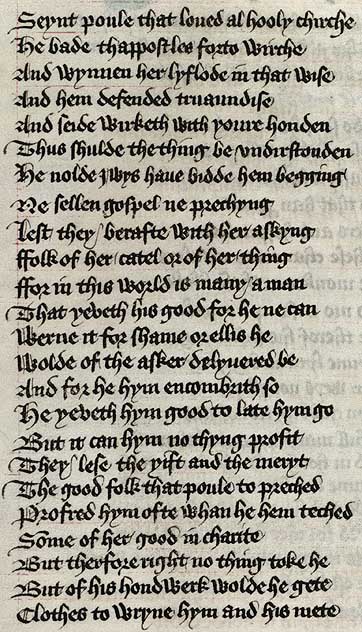 Seynt poule that loued al hooly chirche
He bade thappostles forto wirche
And wynnen her lyflode in that wise
And hem defended truaundise
And seide wirketh with youre honden
Thus shulde the thing be vndirstonden
He nolde jwys haue bidde hem begging
Ne sellen gospel ne prechyng
Lest they berafte with her askyng
ffolk of her catel or of her thing
ffor in this world is many a man
That yeveth his good for he ne can
Werne it for shame or ellis he
Wolde of the asker delyuered be
And for he hym encombrith so
He yeveth hym good to late hym go
But it can hym no thyng profit
They lese the yift and the meryt
The good folk that poule to preched
Profred hym ofte whan he hem teched
Some of her good in charite
But therfore right no thing toke he
But of his hondwerk wolde he gete
Clothes to wryne hym and his mete